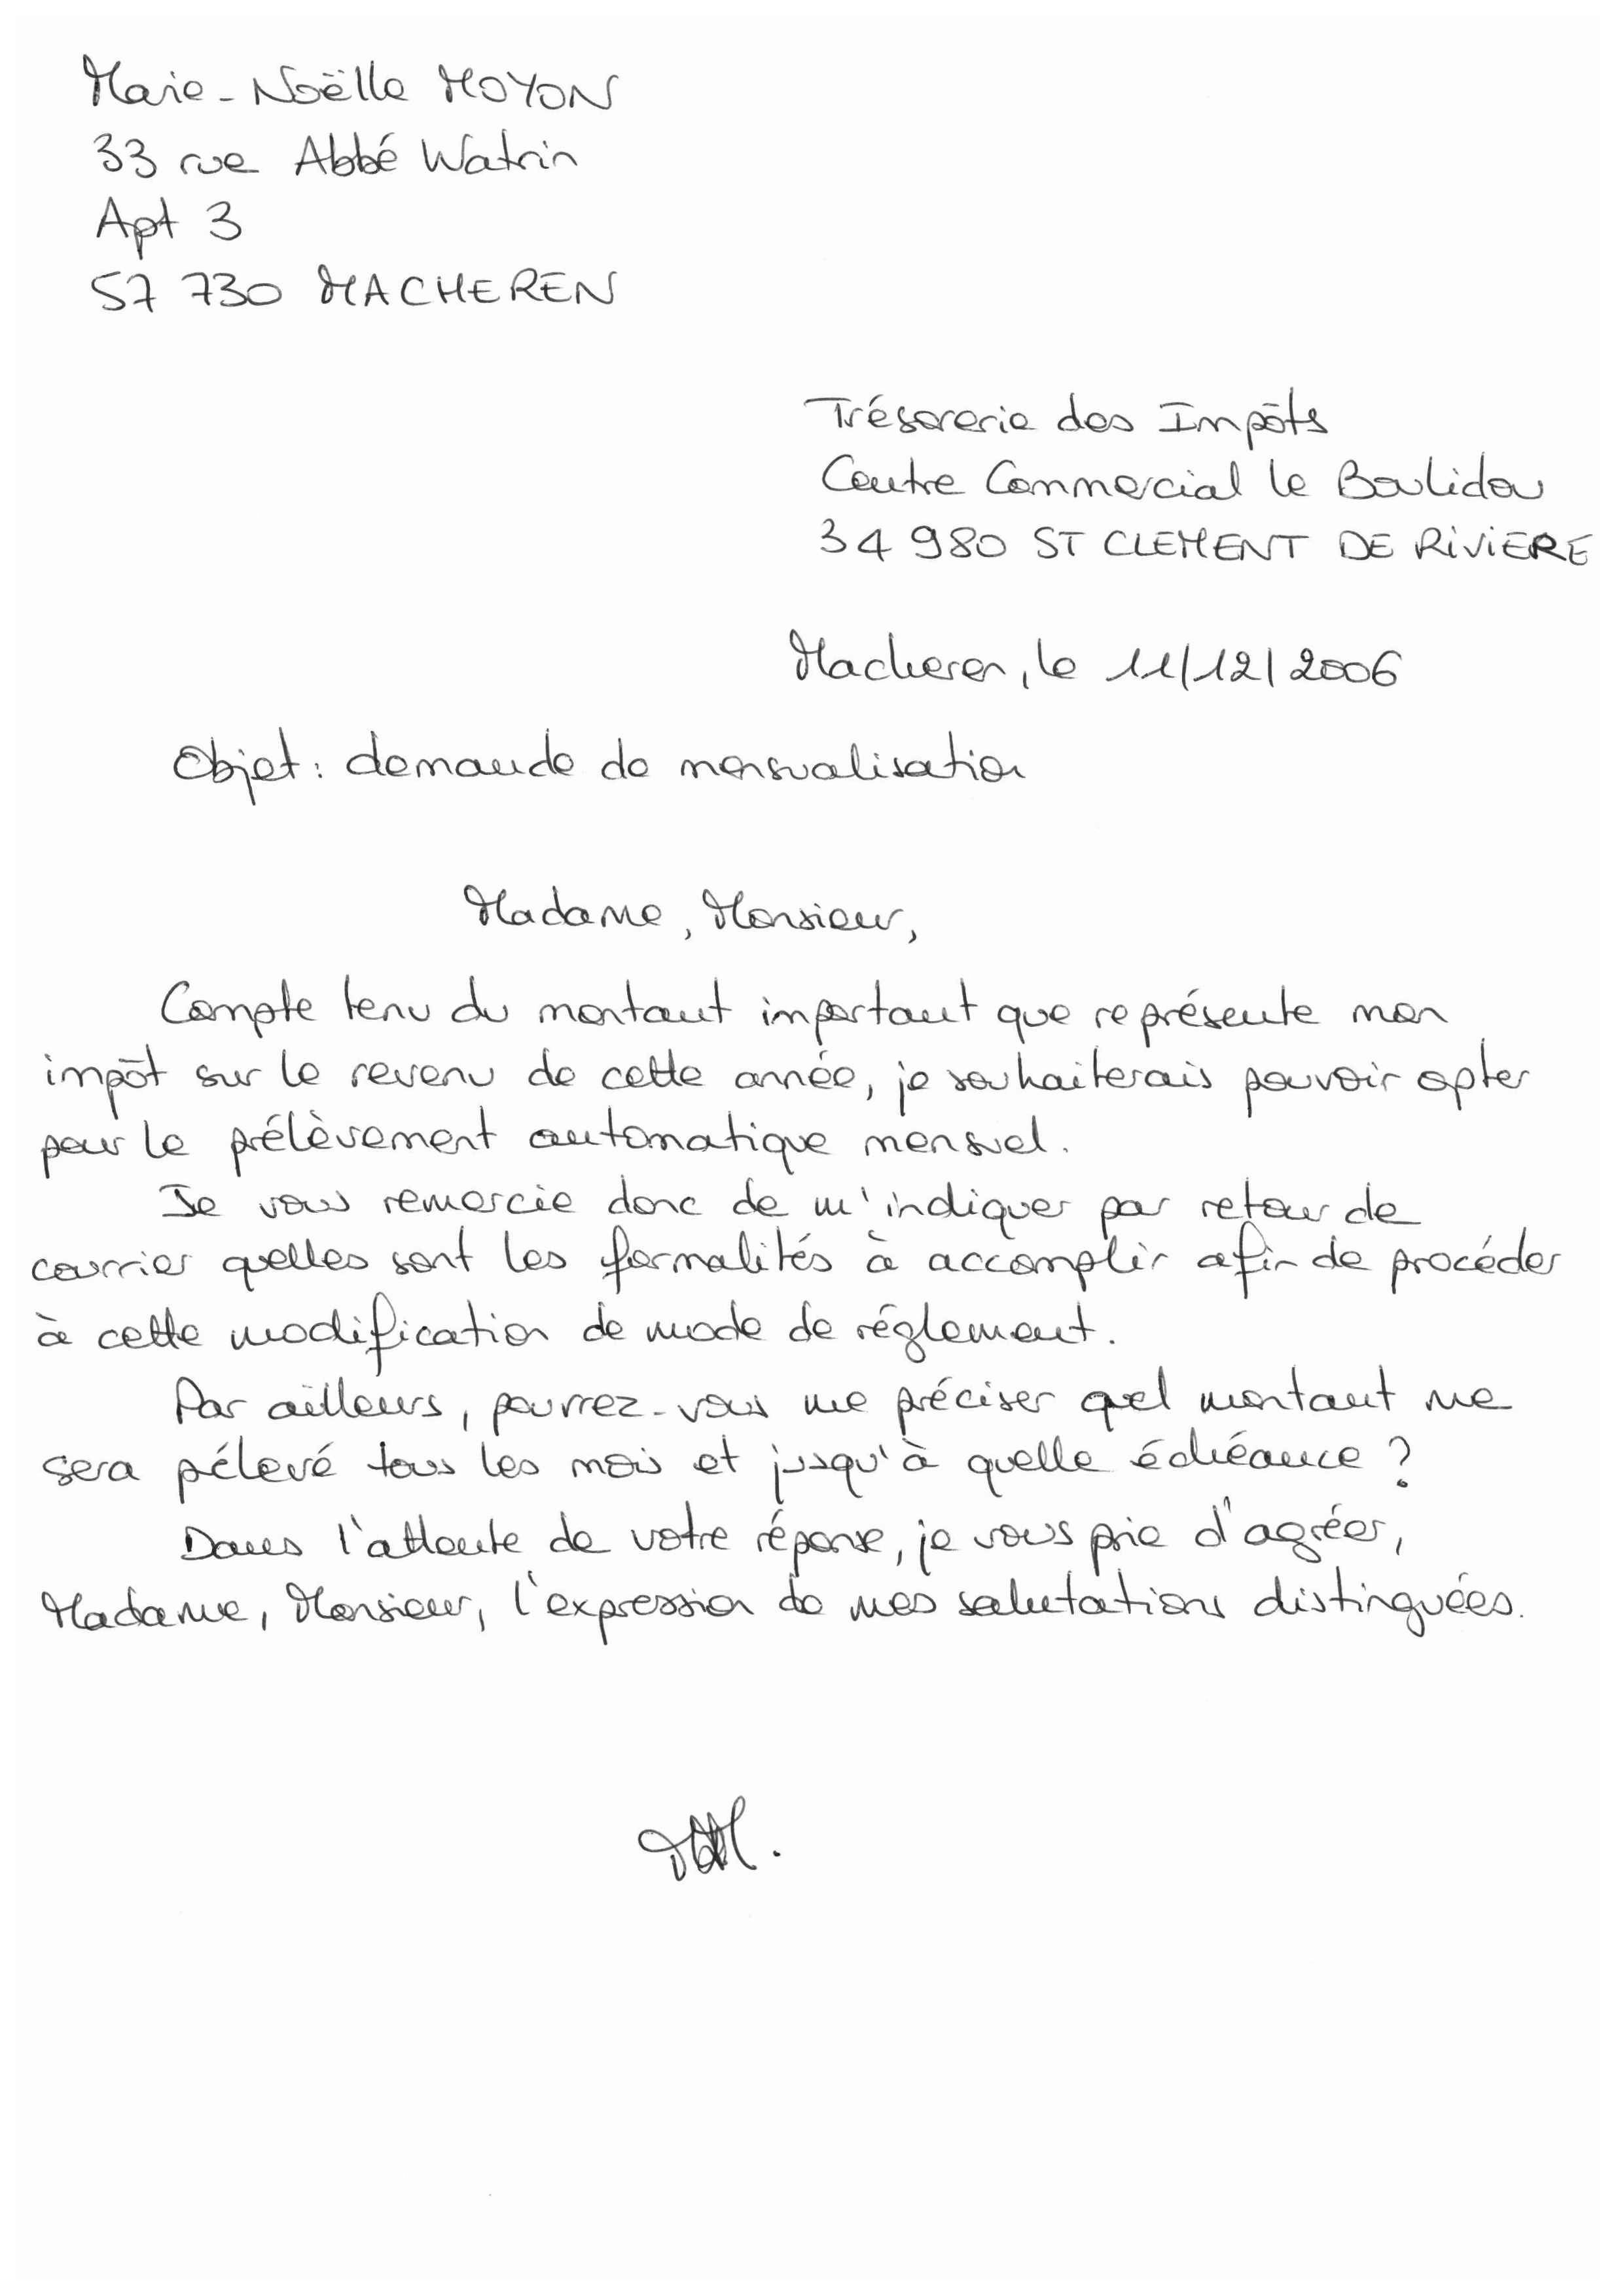 Marie-Noëlle MOYON
33 rue Abbé Watrin
Apt 3
57 730 MACHEREN
Trésorerie des Impôts
Centre Commercial le Boulidou
34 980 ST CLEMENT DE RiViERE
Macheren, le 11/12/2006
Objet : demande de mensualisation
Madame, Monsieur,
Compte tenu du montant important que représente mon
impôt sur le revenu de cette année, je souhaiterais pouvoir opter
pour le prélèvement automatique mensuel.
Je vous remercie donc de m'indiquer par retour de
courrier quelles sont les formalités à accomplir afin de procéder
à cette modification de mode de réglement.
Par ailleurs, pourrez-vous me préciser quel montant me
sera pélevé tous les mois et jusqu'à quelle échéance ?
Dans l'attente de votre réponse, je vous prie d'agréer,
Madame, Monsieur, l'expression de mes salutations distinguées.